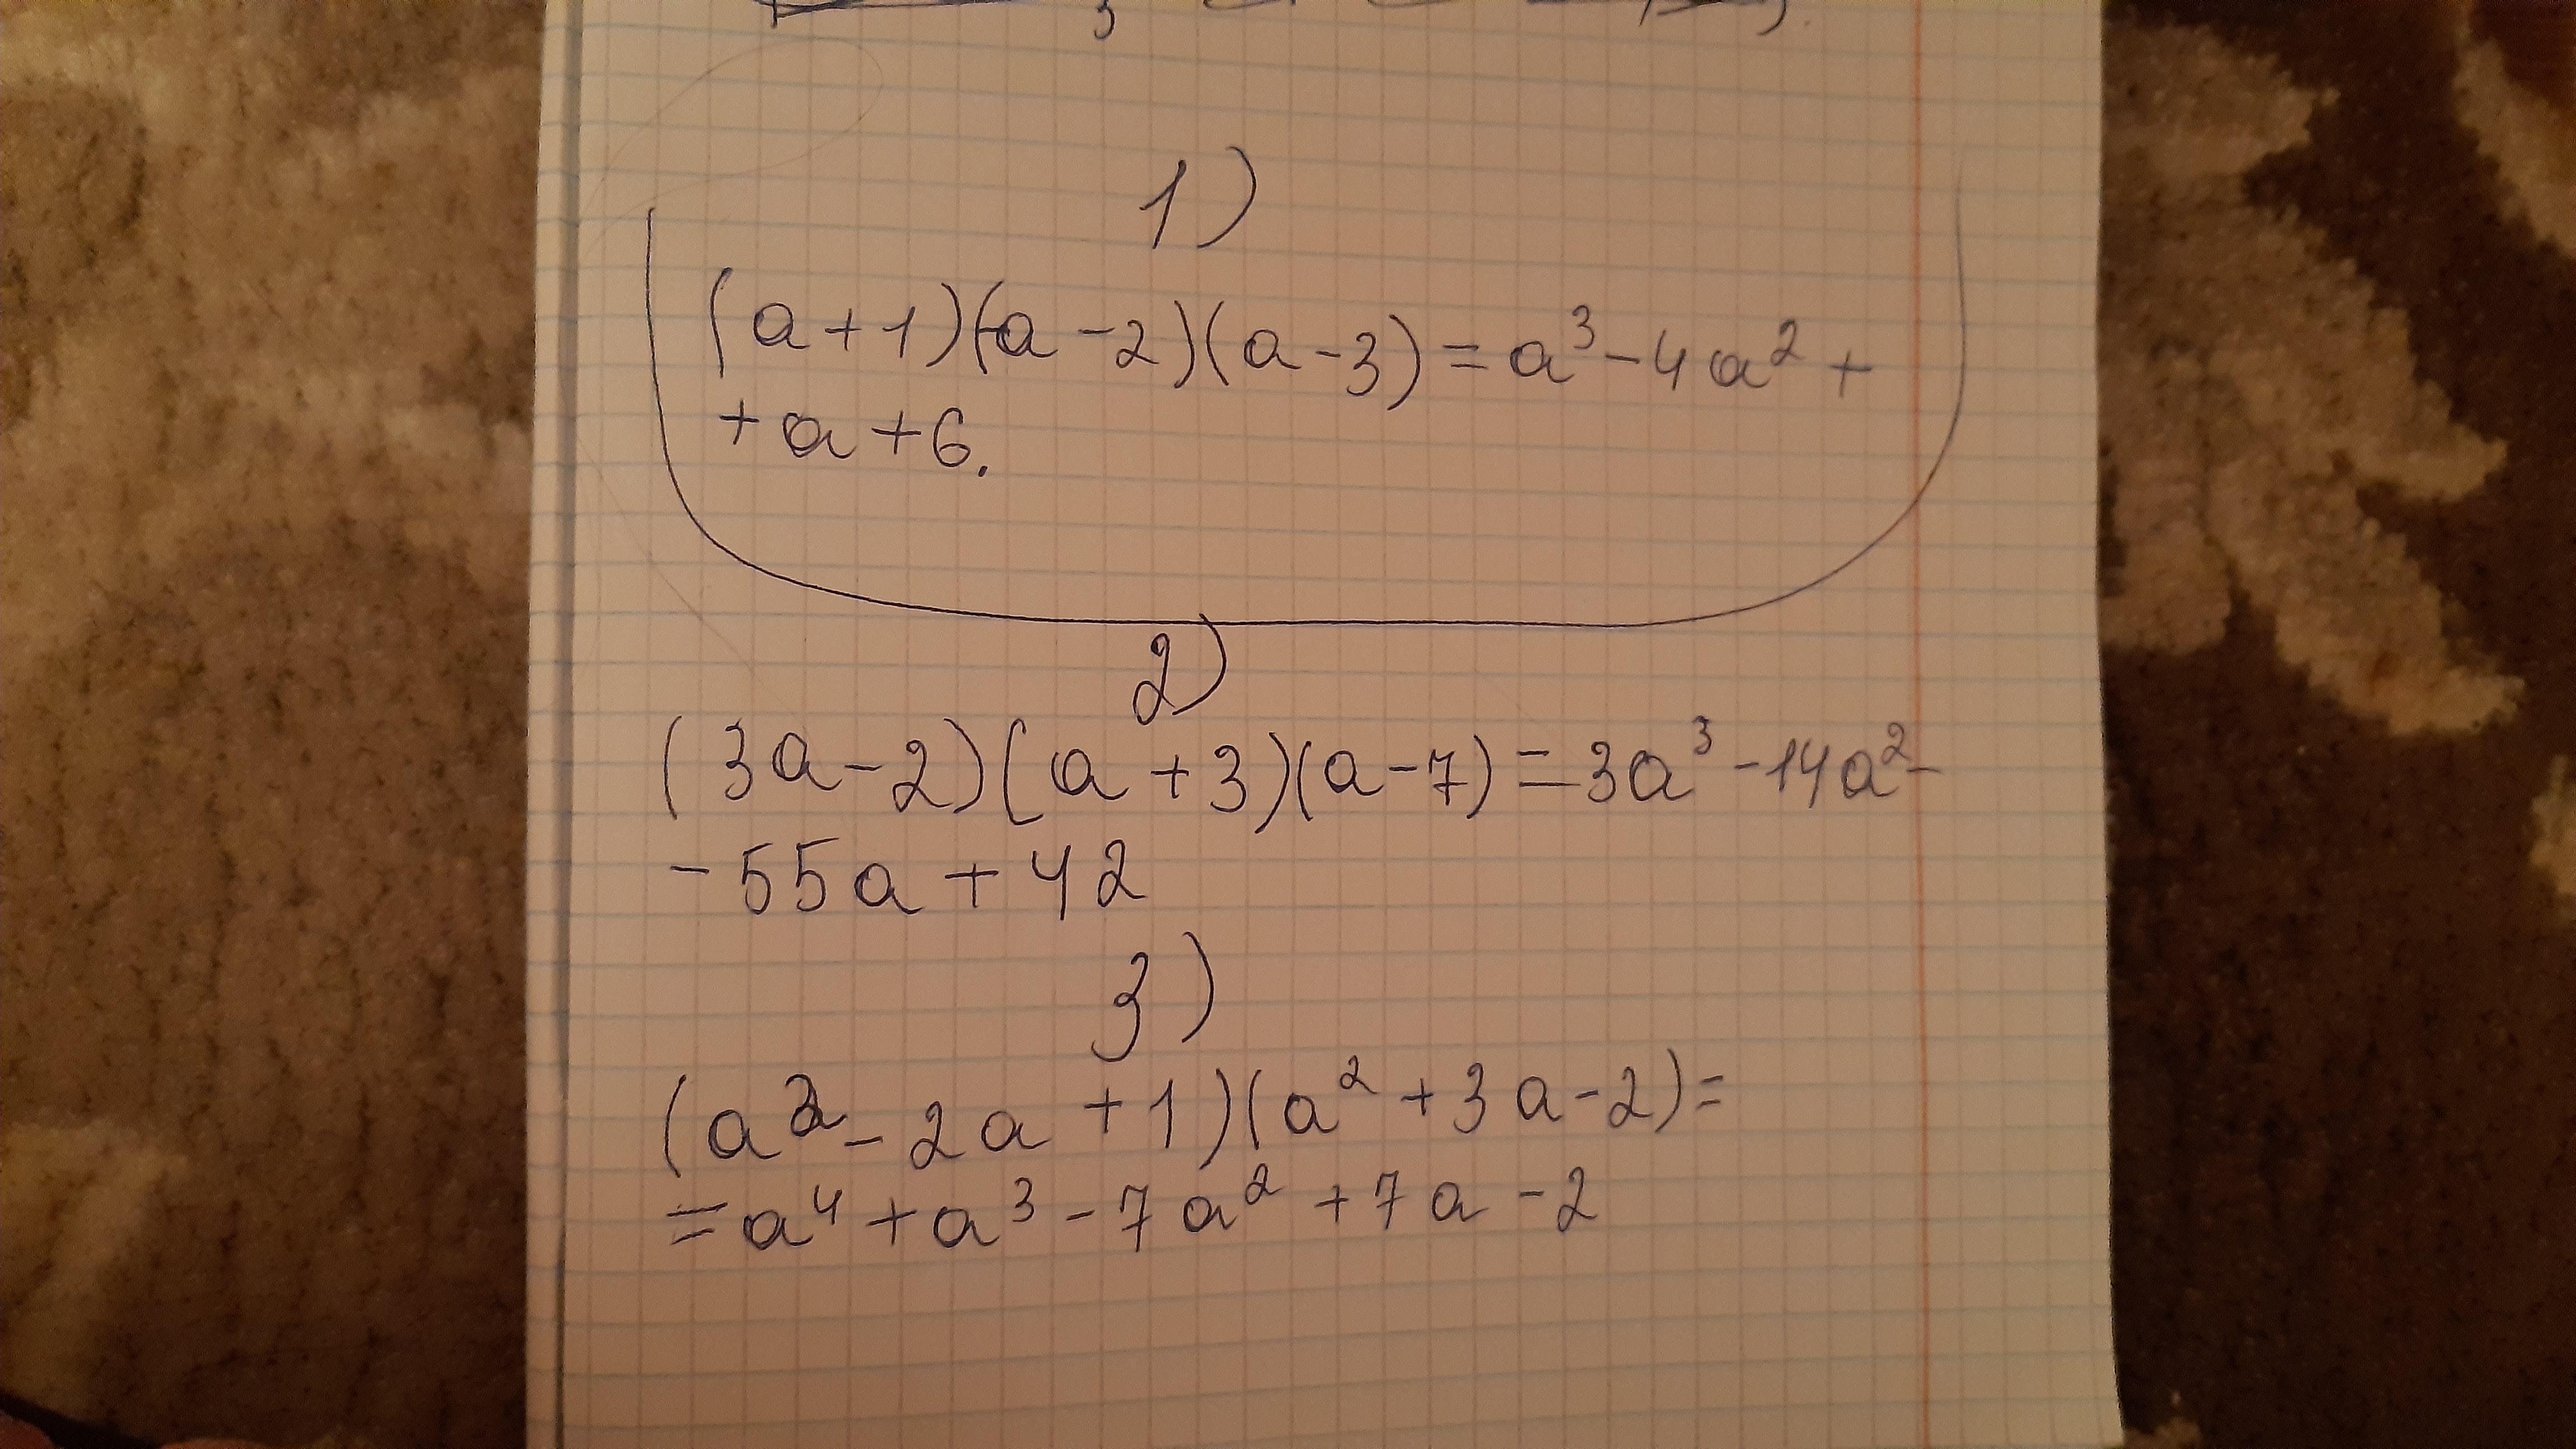 1)
(a+1)(a-2)(a-3)=a³-4a²+
+a+6.
2)
(3a-2)(a+3)(a-7)=3a³-14a²-
-55a+42
3)
(a²-2a+1)(a²+3a-2)=
=a⁴+a³-7a²+7a-2